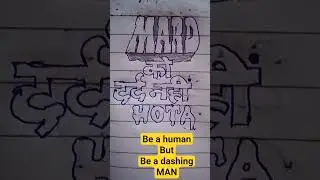 MARD
को
दर्द नहीं
HOTA
Be a human
But
Be a dashing
MAN